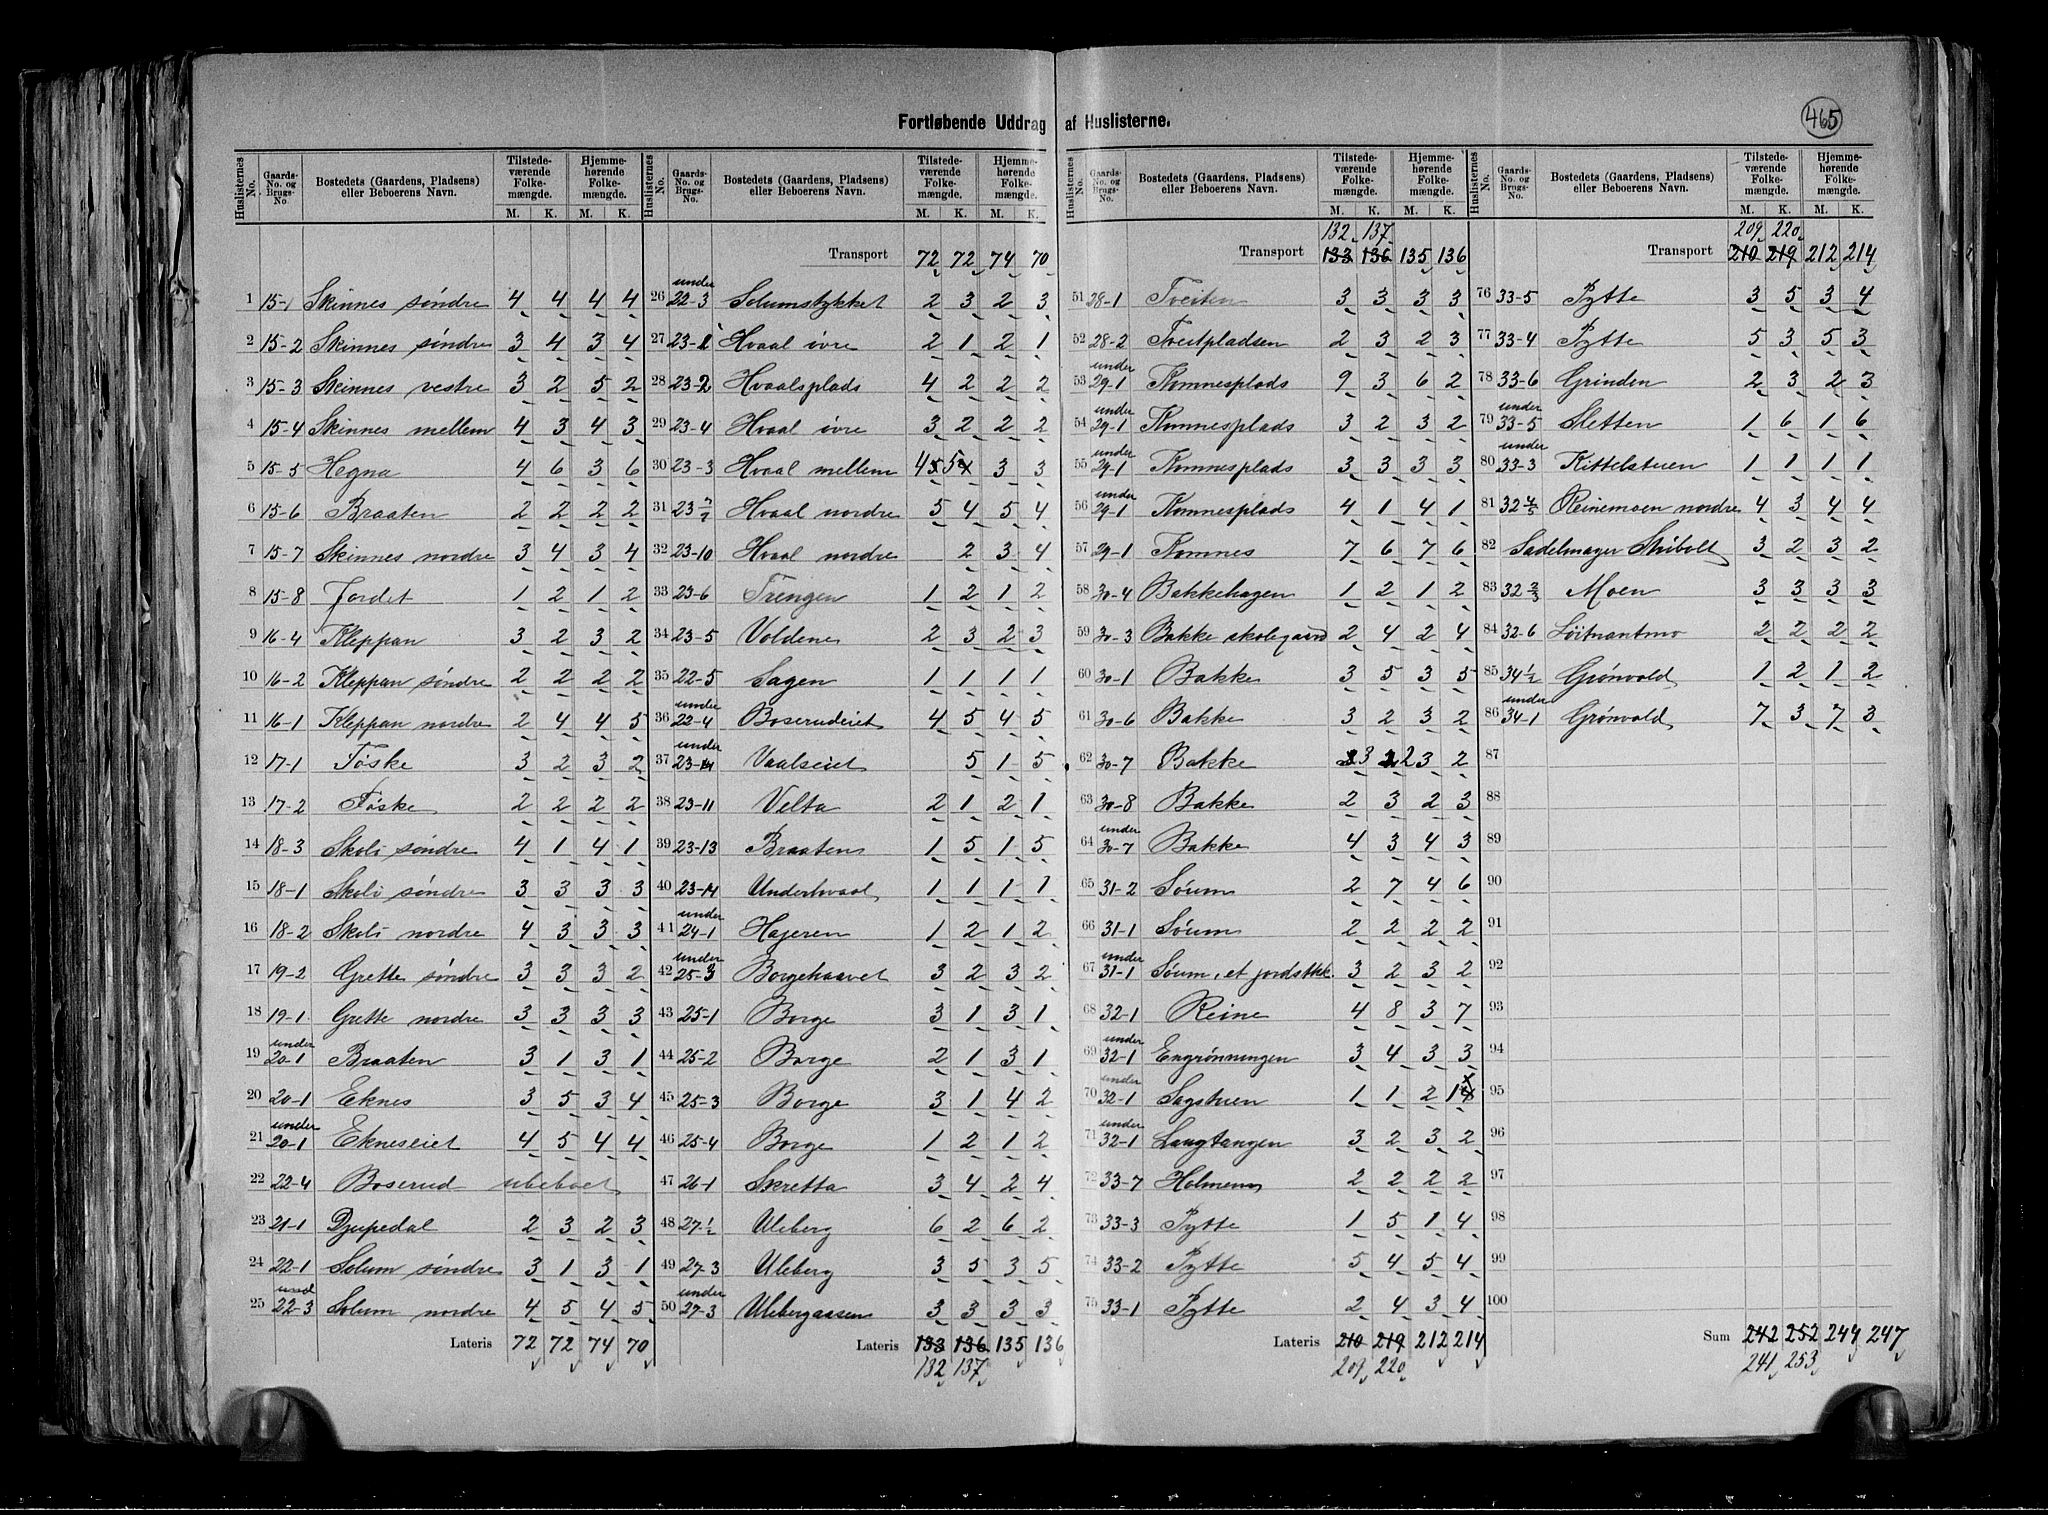 465
Fortløbende Uddrag af Huslisterne.
Huslisternes No. | Gaards-No. og Brugs-No. | Bostedets (Gaardens, Pladsens) eller Beboerens Navn. | Tilstedeværende Folkemængde. M. K. | Hjemmehørende Folkemængde. M. K.
1 15-1 Skinnes søndre 4 4 4 4
2 15-2 Skinnes søndre 3 4 3 4
3 15-3 Skinnes vestre 3 2 5 2
4 15-4 Skinnes mellem 4 3 4 3
5 15-5 Hegna 4 6 3 6
6 15-6 Braaten 2 2 2 2
7 15-7 Skinnes nordre 3 4 3 4
8 15-8 Jordet 1 2 1 2
9 16-4 Kleppan 3 2 3 2
10 16-2 Kleppan søndre 2 2 2 2
11 16-1 Kleppan nordre 2 4 4 5
12 17-1 Føske 3 2 3 2
13 17-2 Føske 2 2 2 2
14 18-3 Skoli søndre 4 1 4 1
15 18-1 Skoli søndre 3 3 3 3
16 18-2 Skoli nordre 4 3 3 3
17 19-2 Grette søndre 3 3 3 2
18 19-1 Grette nordre 3 3 3 3
19 under 20-1 Braaten 3 1 3 1
20 20-1 Eknes 3 5 3 4
21 under 20-1 Ekneseiet 4 5 4 4
22 22-4 Boserud ubeboet
23 21-1 Djupedal 2 3 2 3
24 22-1 Solum søndre 3 1 3 1
25 und 22-3 Solum nordre 4 5 4 5
Lateris 72 72 74 70
Huslisternes No. | Gaards-No. og Brugs-No. | Bostedets (Gaardens, Pladsens) eller Beboerens Navn. | Tilstedeværende Folkemængde. M. K. | Hjemmehørende Folkemængde. M. K.
Transport 72 72 74 70
26 under 22-3 Solumstykket 2 3 2 3
27 23-1 Hvaal øvre 2 1 2 1
28 23-2 Hvaalsplads 4 2 2 2
29 23-4 Hvaal øvre 3 2 2 2
30 23-3 Hvaal mellem 4 5 3 3
31 23 Hvaal nordre 5 4 5 4
32 23-10 Hvaal nordre 2 3 4
33 23-6 Trengen 1 2 1 2
34 23-5 Voldene 2 3 2 3
35 22-5 Sagen 1 1 1 1
36 under 22-4 Boserudeiet 4 5 4 5
37 under 23-14 Vaalseiet 5 1 5
38 23-11 Velta 2 1 2 1
39 23-13 Braaten 1 5 1 5
40 23-14 Underhvaal 1 1 1 1
41 under 24-1 Hageren 1 2 1 2
42 under 25-3 Borgehaavet 3 2 3 2
43 25-1 Borge 3 1 3 1
44 25-2 Borge 2 1 3 1
45 25-3 Borge 3 1 4 2
46 25-4 Borge 1 2 1 2
47 26-1 Skretta 3 4 2 4
48 27 1/2 Uleberg 6 2 6 2
49 27-3 Uleberg 3 5 3 5
50 under 27-3 Ulebergaasen 3 3 3 3
Lateris 133 136 135 136
132 137
Huslisternes No. | Gaards-No. og Brugs-No. | Bostedets (Gaardens, Pladsens) eller Beboerens Navn. | Tilstedeværende Folkemængde. M. K. | Hjemmehørende Folkemængde. M. K.
132 137
Transport 133 136 135 136
51 28-1 Tveiten 3 3 3 3
52 28-2 Tveitpladsen 2 3 2 3
53 under 29-1 Tomnesplads 9 3 6 2
54 under 29-1 Tomnesplads 3 2 3 2
55 under 29-1 Tomnesplads 3 3 3 3
56 under 29-1 Tomnesplads 4 1 4 1
57 29-1 Tomnes 7 6 7 6
58 30-4 Bakkehagen 1 2 1 2
59 30-3 Bakke skolegaard 2 4 2 4
60 30-1 Bakke 3 5 3 5
61 30-6 Bakke 3 2 3 2
62 30-7 Bakke 3 2 3 2
63 30-8 Bakke 2 3 2 3
64 under 30-7 Bakke 4 3 4 3
65 31-2 Søum 2 7 4 6
66 31-1 Søum 2 2 2 2
67 under 31-1 Søum, et jordstkk. 3 2 3 2
68 32-1 Reine 4 8 3 7
69 under 32-1 Engrønningen 3 4 3 3
70 under 32-1 Sagstuen 1 1 2 1
71 under 32-1 Langtangen 3 2 3 2
72 33-7 Holmen 2 2 2 2
73 33-3 Pytte 1 5 1 4
74 33-2 Pytte 5 4 5 4
75 33-1 Pytte 2 4 3 4
Lateris 210 219 212 214
209 220
Huslisternes No. | Gaards-No. og Brugs-No. | Bostedets (Gaardens, Pladsens) eller Beboerens Navn. | Tilstedeværende Folkemængde. M. K. | Hjemmehørende Folkemængde. M. K.
209 220
Transport 210 219 212 214
76 33-5 Pytte 3 5 3 4
77 33-4 Pytte 5 3 5 3
78 33-6 Grinden 2 3 2 3
79 under 33-5 Sletten 1 6 1 6
80 under 33-3 Kittelstuen 1 1 1 1
81 32 4/5 Reinemoen nordre 4 3 4 4
82 Sadelmager Skibolt 3 2 3 2
83 32 2/3 Moen 3 3 3 3
84 32-6 Løitnantmo 2 2 2 2
85 34 1/2 Grønvold 1 2 1 2
86 under 34-1 Grønvold 7 3 7 3
87
88
89
90
91
92
93
94
95
96
97
98
99
100
Sum 242 252 244 247
241 253